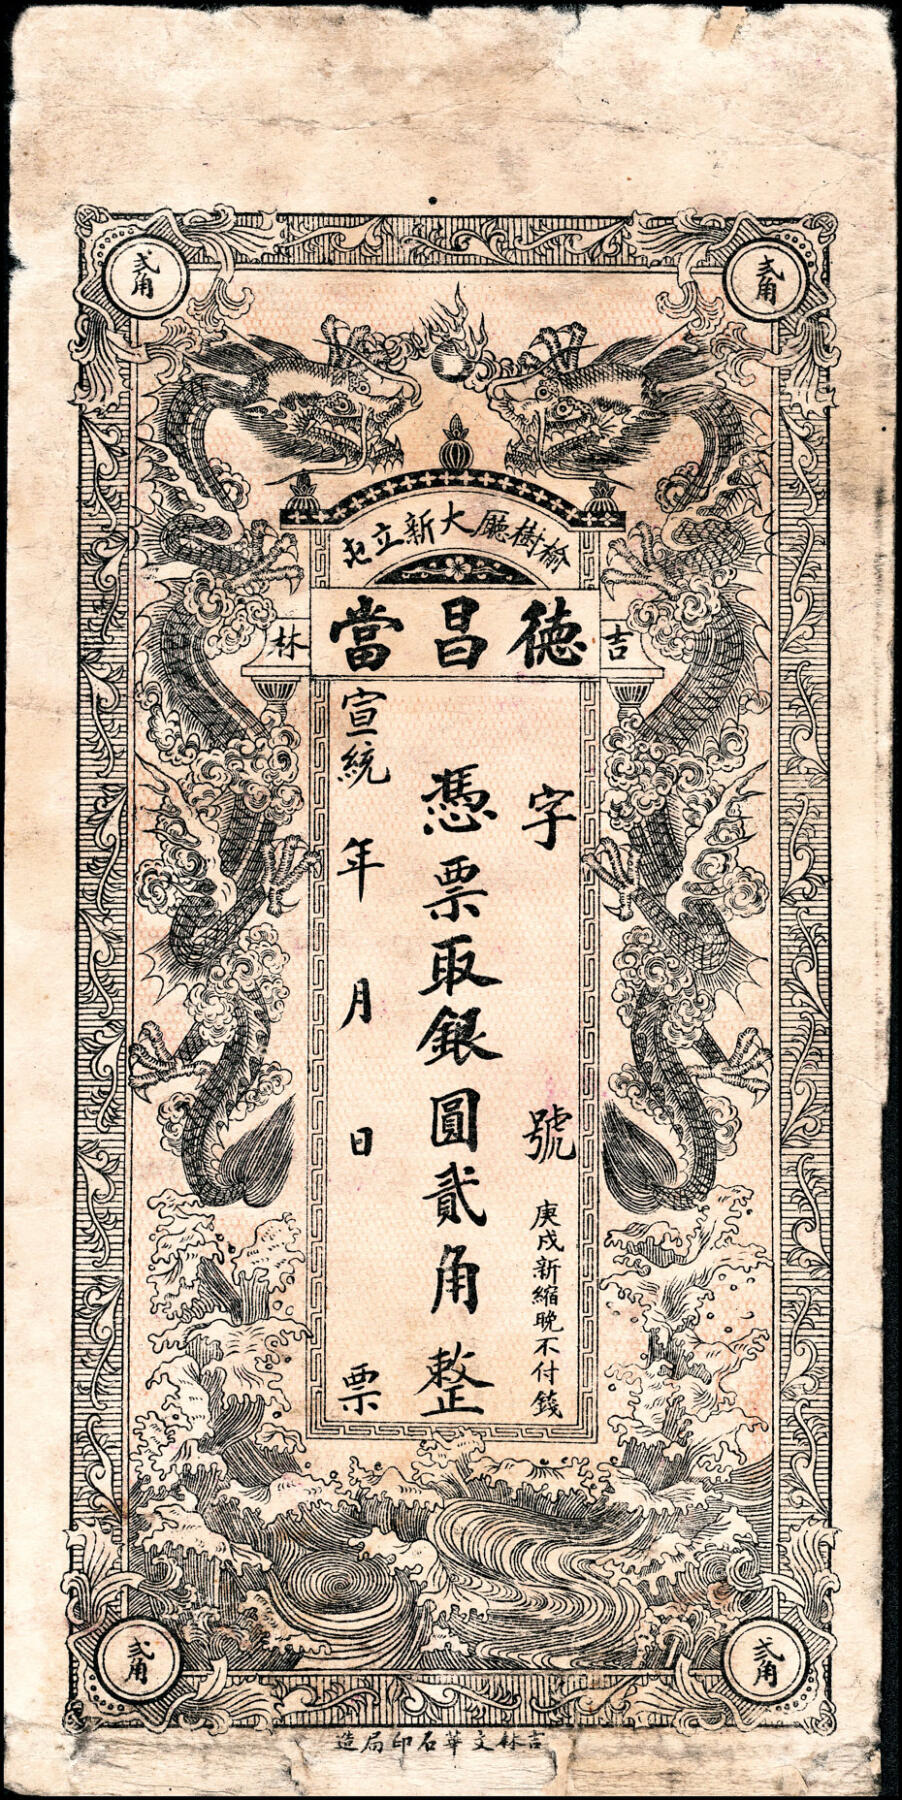 貳角
貳角
榆樹廳大新立屯
吉
德昌當
林
字
號
庚戌新縮晚不付錢
憑票取銀圓貳角整
宣統
年
月
日
票
貳角
貳角
吉林文華石印局造